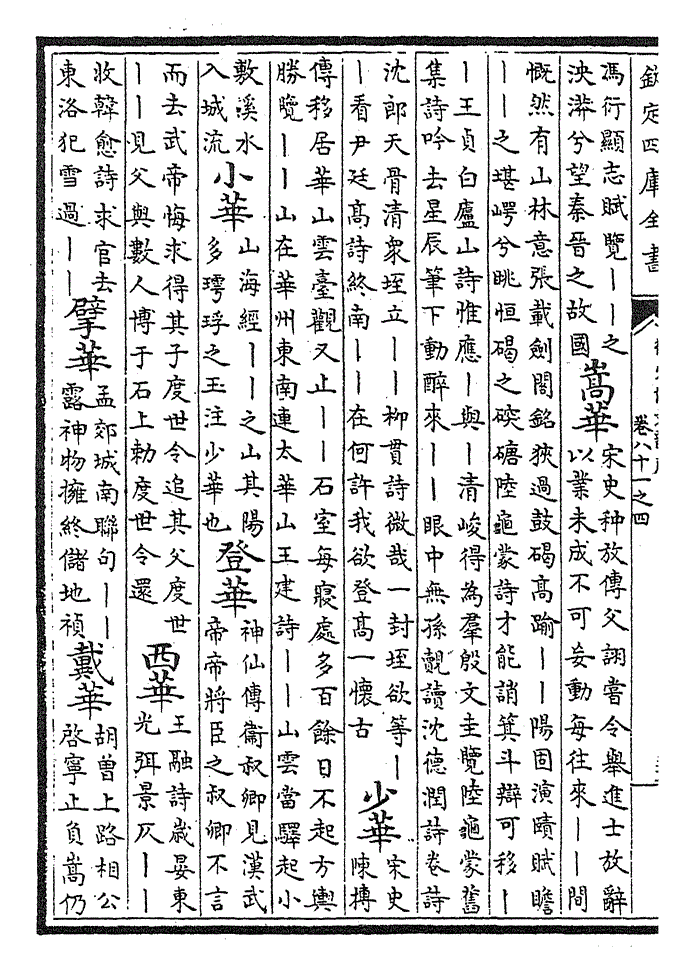 欽定四庫全書
卷八十一之四
馮衍顯志賦覽||之
泱漭兮望秦晉之故國
嵩華
宋史种放傳父詡嘗令舉進士放辭
以業未成不可妄動每往來||間
慨然有山林意張載劍閣銘狹過鼓碣高踰||陽固演賾賦瞻
||之堪崿兮眺恒碣之碶磄陸龜蒙詩才能誚箕斗辯可移|
|王貞白廬山詩惟應|與|清峻得為羣殷文圭覽陸龜蒙舊
集詩吟去星辰筆下動醉來||眼中無孫覿讀沈德潤詩卷詩
沈郎天骨清衆垤立||柳貫詩微哉一封垤欲等|
|看尹廷高詩終南||在何許我欲登高一懷古
少華
宋史
陳摶
傳移居華山雲臺觀又止||石室每寢處多百餘日不起方輿
勝覽||山在華州東南連太華山王建詩||山雲當驛起小
敷溪水
入城流
小華
山海經||之山其陽
多㻬琈之玉注少華也
登華
神仙傳衞叔卿見漢武
帝帝將臣之叔卿不言
而去武帝悔求得其子度世令追其父度世
||見父與數人博于石上勅度世令還
西華
王融詩歲晏東
光弭景仄||
收韓愈詩求官去
東洛犯雪過||
擘華
孟郊城南聯句||
露神物擁終儲地禎
戴華
胡曾上路相公
啓寧止負嵩仍